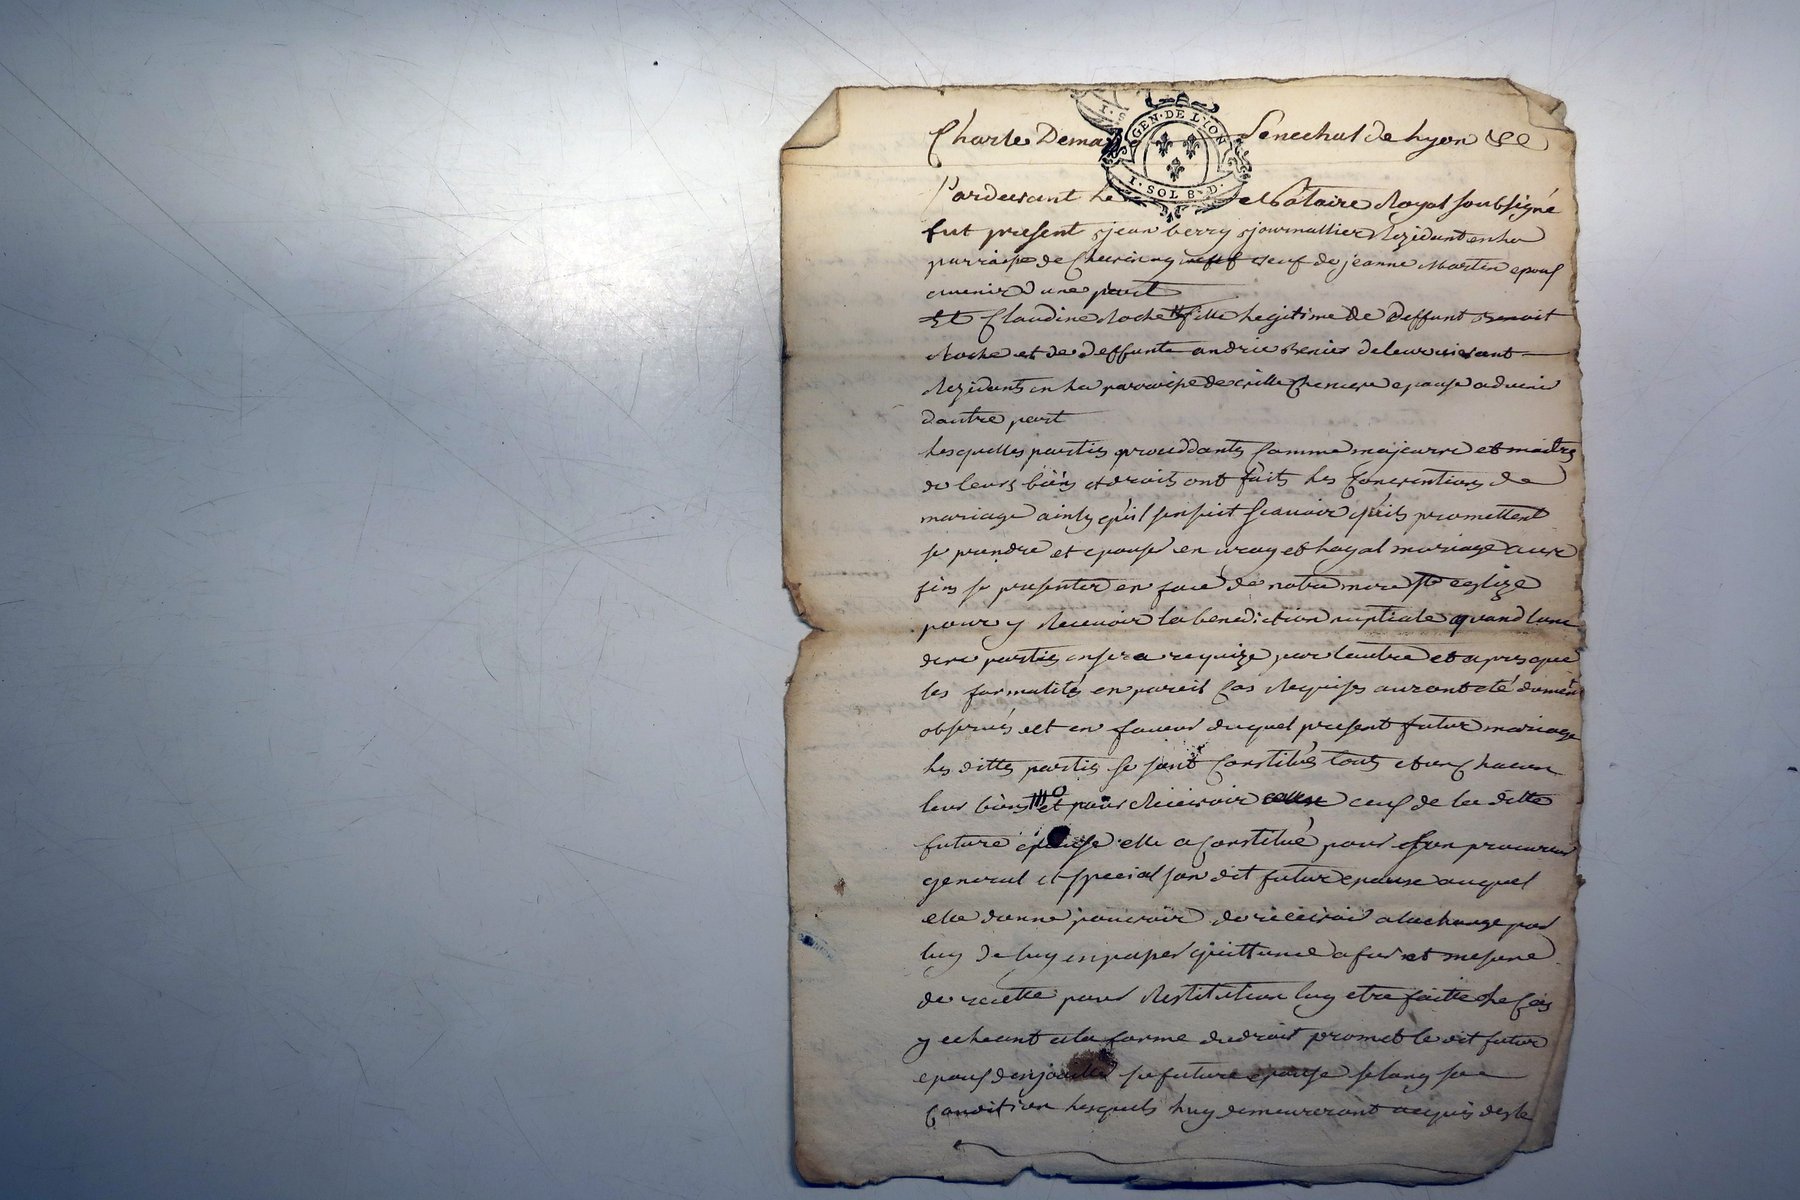 Charle Dema Senechal de Lyon &c
GEN·DE L·ION
I·SOL 8·D·
Pardevant Le Notaire Royal soubsigné
fut present jean berry journallier Rezidant en La
parroipe de veuf de jeanne Martin epoux
avenir d'une part
Et Claudine Roche fille Legitime de deffunt Benoit
Roche et de deffunte andrie de leur vivant
Rezidants en La parroipe de ville epouse advenir
dautre part
Lesquelles parties proceddants Comme majeurre et maitres
de leurs biens et droits ont faits les Conventions de
mariage ainsy qu'il sensuit Scavoir qu'ils promettent
se prendre et epouser en vray et Loyal mariage aux
fins se presenter en face de notre mere Ste eglize
pour y Recevoir la benediction nuptiale quand lune
des parties en sera requize par lautre et apres que
les formalités en pareil Cas Requises auront eté dument
observés et en faveur duquel present futur mariage
Les dittes parties se sont Constitués tous et un chacun
leur biens et pour Recevoir ceux de la ditte
future epouse elle a Constitué pour son procureur
general et special son dit futur epoux auquel
elle donne pouvoir de recevoir a la charge par
luy de luy en paper quittance a fur et mesure
de recette pour Restitution luy etre faitte Le Cas
y echeant a la forme du droit promet le dit futur
epoux denjoailler sa future epouse selong sa
Condition Lesquels Luy demeureront acquis des le